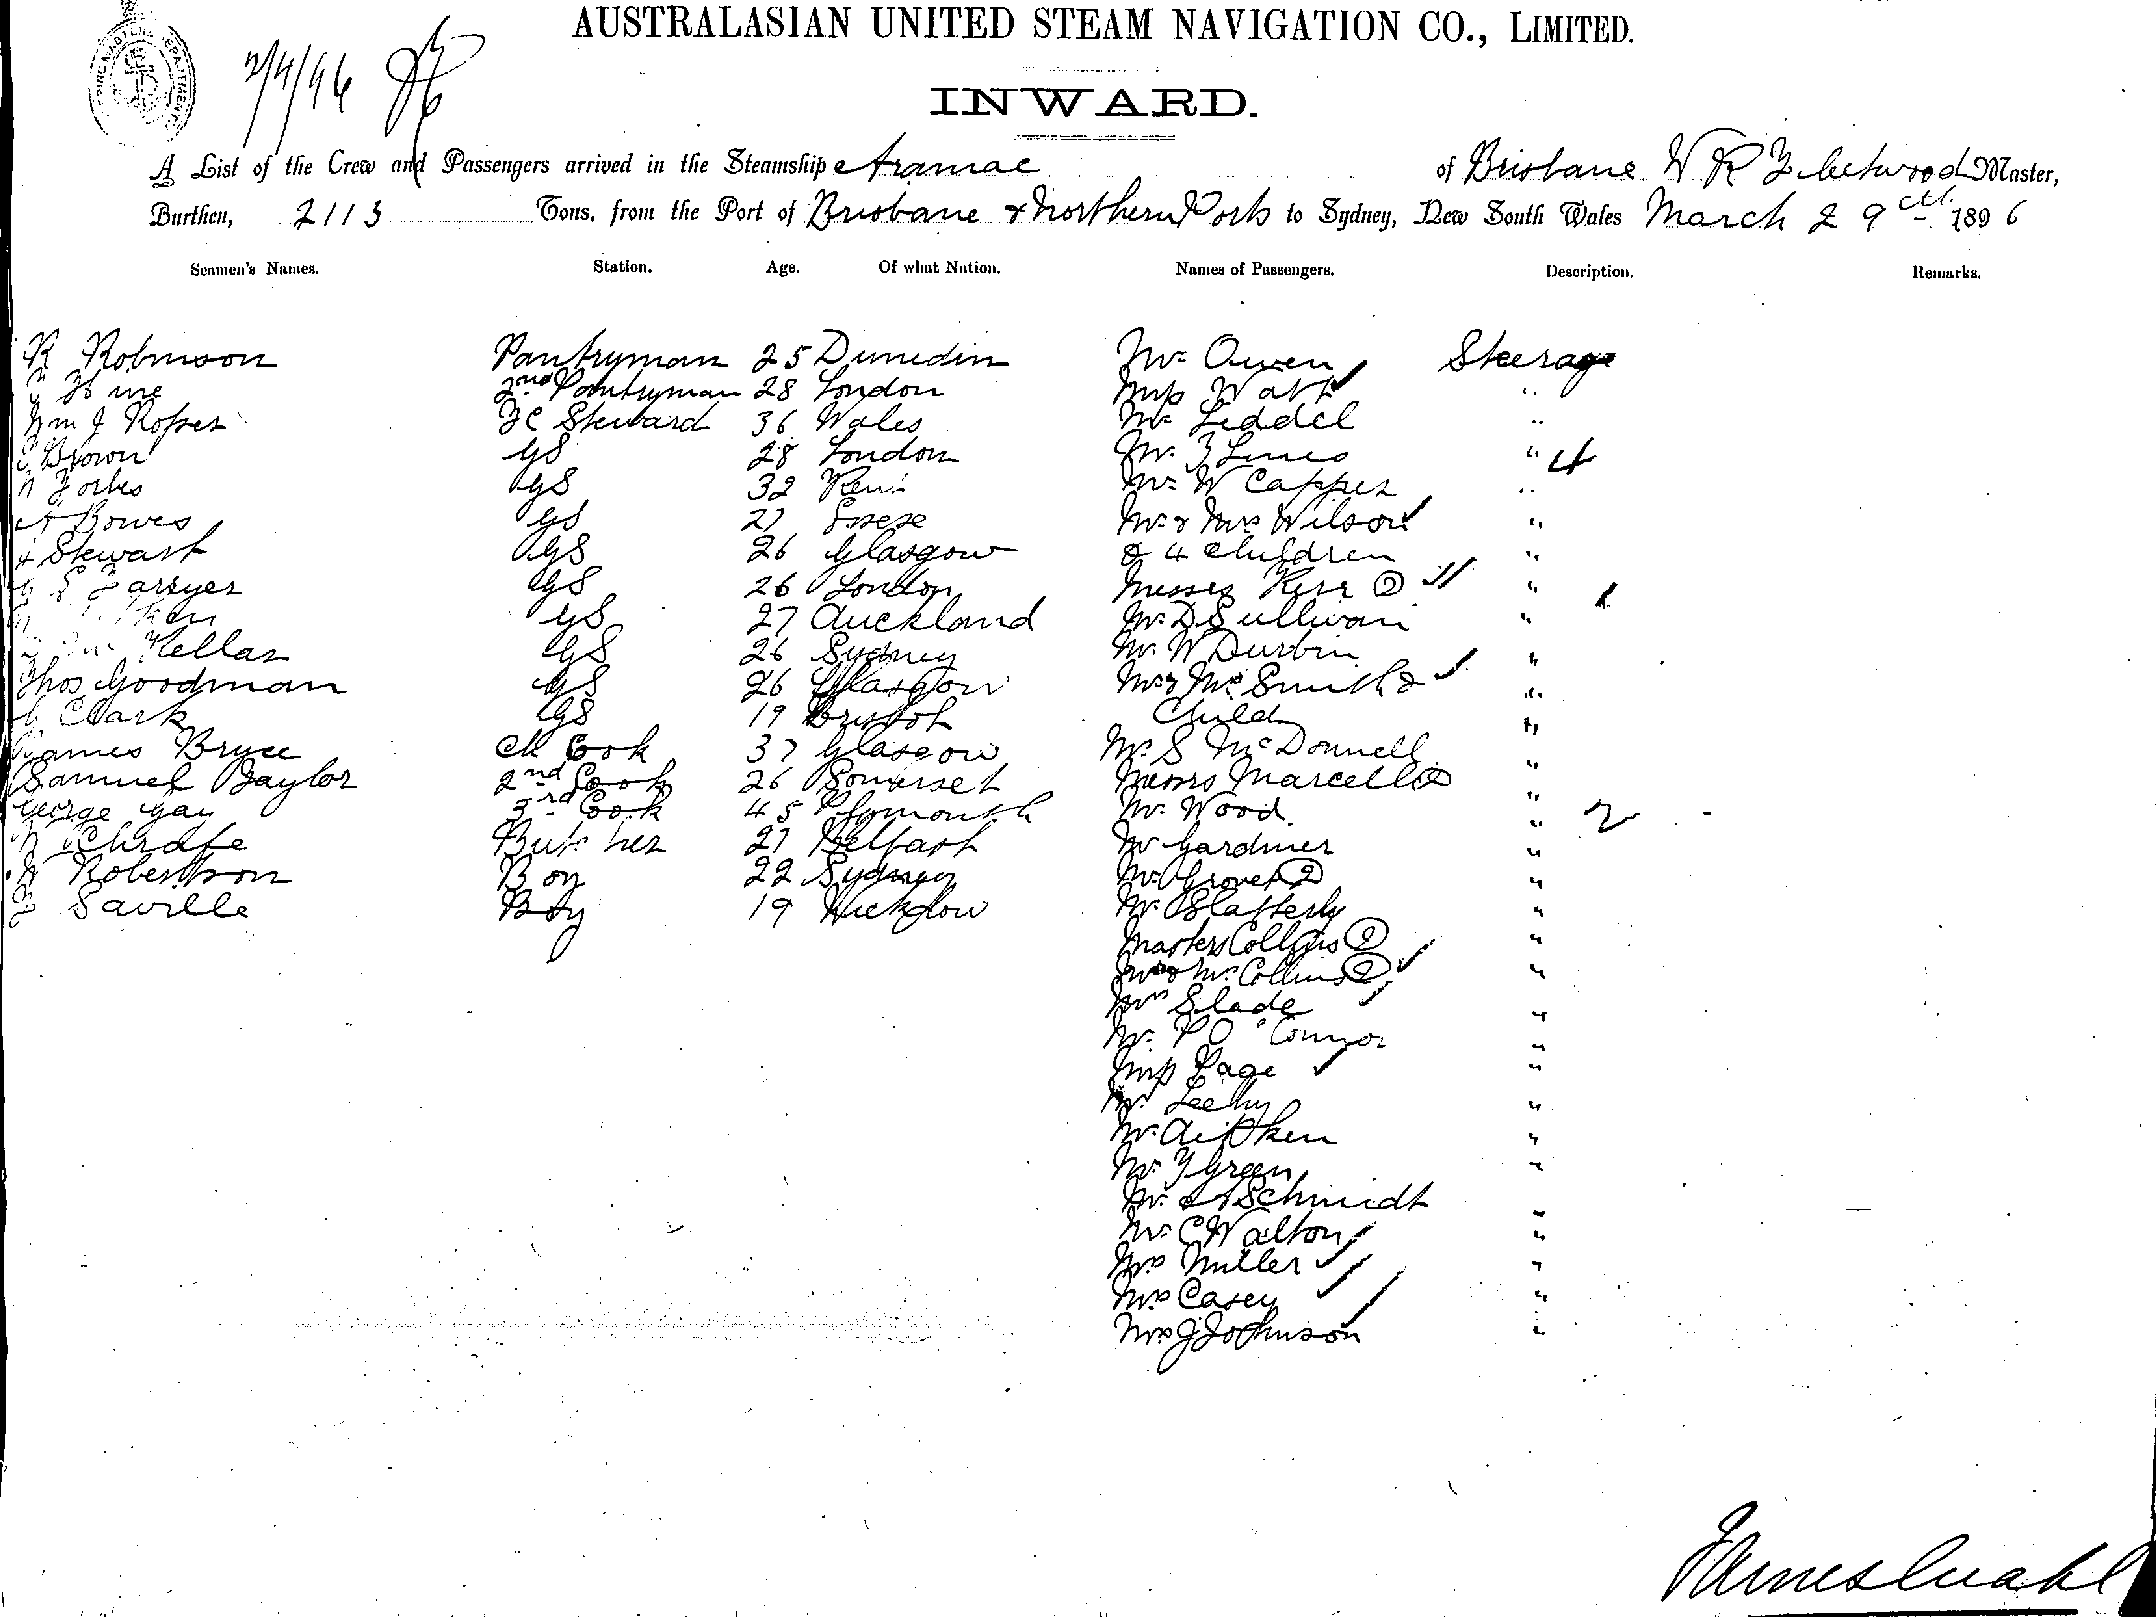 AUSTRALASIAN UNITED STEAM NAVIGATION CO., LIMITED.
2/4/96
INWARD.
A List of the Crew and Passengers arrived in the Steamship Aramac of Brisbane W R Fleetwood Master,
Burthen, 2113 Tons, from the Port of Brisbane & Northern Ports to Sydney, New South Wales March 29th 1896
Seamen's Names. Station. Age. Of what Nation. Names of Passengers. Description. Remarks.
R Robinson Pantryman 25 Dunedin Mr Owen Steerage
2nd Pantryman 28 London Miss Watt "
Wm J Roper FC Steward 36 Wales Mr Liddel "
Brown GS 28 London Mr " 4
Forbes GS 32 Kent Mr W Capper "
A Bowes GS 27 Essex Mr & Mrs Wilson "
Stewart GS 26 Glasgow & 4 Children "
Farryer GS 26 London Misses Kerr 2 " 1
GS 27 Auckland Mr D Sullivan "
Kellar GS 26 Sydney Mr W Durbin "
Thos Goodman GS 26 Glasgow Mr & Mrs Smith & "
Clark GS 19 Bristol Child "
James Bryce Ch Cook 37 Glasgow Mr S McDonnell "
Samuel Baylor 2nd Cook 26 Somerset Messrs Marcell 2 "
George Gay 3rd Cook 45 Plymouth Mr Wood " 2 -
Butcher 27 Belfast Mr Gardiner "
Robertson Boy 22 Sydney Mr Grover 2 "
Saville Boy 19 Wicklow Mr Slatterly "
Masters Collins 2 "
Mr & Mrs Collins 2 "
Mrs Slade "
Mr P O'Connor "
Miss Page "
Mr Leehy "
Mr Aitken "
Mr Green "
Mr A Schmidt "
Mr C Walton "
Mrs Miller "
Mrs Casey "
Mrs J Johnson "